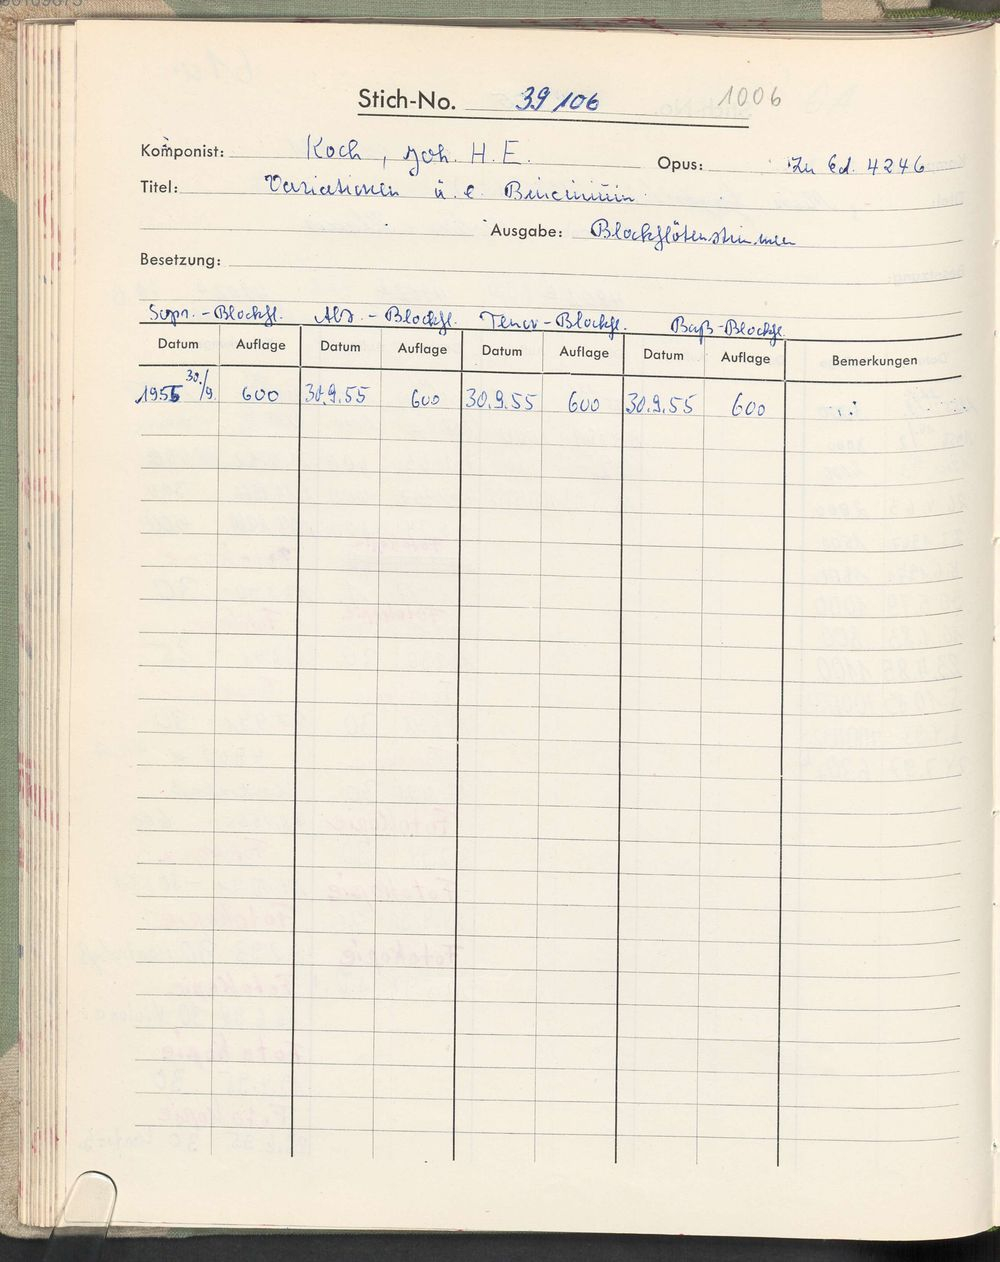 Stich-No. 39 106 1006
Komponist: Koch, Joh. H. E. Opus: Zu Ed. 4246
Titel: Variationen ü. e. Bincinium
Ausgabe: Blockflötenstimmen
Besetzung:
Sopr.-Blockfl. Alt.-Blockfl. Tenor-Blockfl. Baß-Blockfl.
Datum Auflage Datum Auflage Datum Auflage Datum Auflage Bemerkungen
1955 30./9. 600 30.9.55 600 30.9.55 600 30.9.55 600